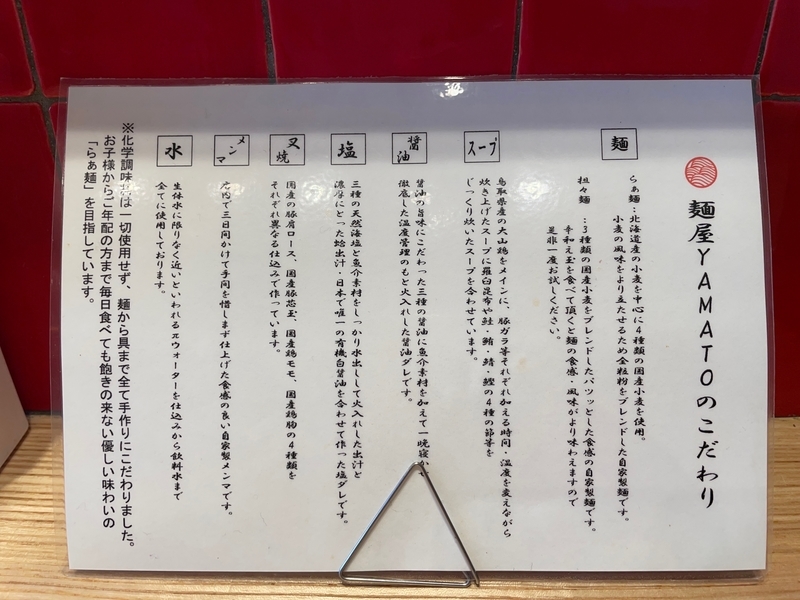 麺屋YAMATOのこだわり
麺
らぁ麺：北海道産の小麦を中心に4種類の国産小麦を使用。
小麦の風味をより立たせるため全粒粉をブレンドした自家製麺です。
担々麺：3種類の国産小麦をブレンドしたパツッとした食感の自家製麺です。
辛和え玉を食べて頂くと麺の食感・風味がより味わえますので
是非一度お試しください。
スープ
鳥取県産の大山鶏をメインに、豚ガラ等それぞれ加える時間・温度を変えながら
炊き上げたスープに羅臼昆布や鮭・鮪・鯖・鰹の4種の節等を
じっくり炊いたスープを合わせています。
醤油
醤油の旨味にこだわった三種の醤油に魚介素材を加えて一晩寝か
徹底した温度管理のもと火入れした醤油ダレです。
塩
三種の天然海塩と魚介素材をしっかり水出しして火入れした出汁と
濃厚にとった蛤出汁・日本で唯一の有機白醤油を合わせて作った塩ダレです。
叉焼
国産の豚肩ロース、国産豚芯玉、国産鶏モモ、国産鶏胸の4種類を
それぞれ異なる仕込みで作っています。
メンマ
店内で三日間かけて手間を惜しまず仕上げた食感の良い自家製メンマです。
水
生体水に限りなく近いといわれるπウォーターを仕込みから飲料水まで
全てに使用しております。
※化学調味料は一切使用せず、麺から具まで全て手作りにこだわりました。
お子様からご年配の方まで毎日食べても飽きの来ない優しい味わいの
「らぁ麺」を目指しています。